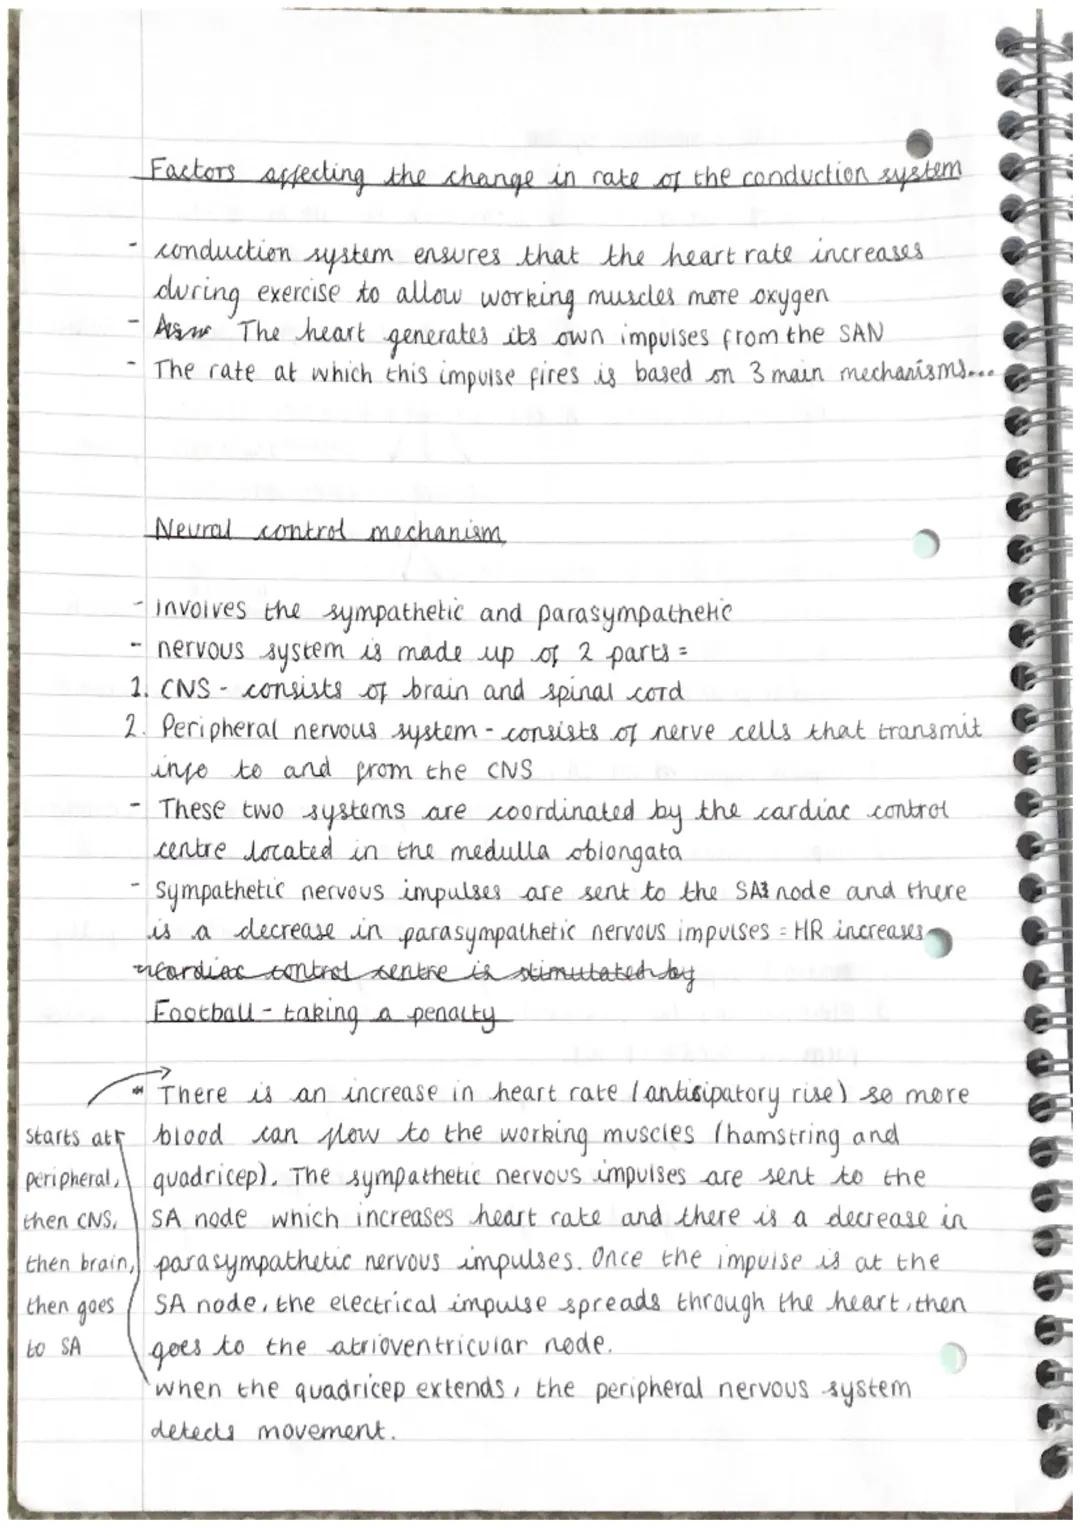 Factors affecting the change in rate of the conduction system
- conduction system ensures that the heart rate increases
during exercise to allow working muscles more oxygen
- The heart generates its own impulses from the SAN
- The rate at which this impulse fires is based on 3 main mechanisms...
Neural control mechanism
- involves the sympathetic and parasympathetic
- nervous system is made up of 2 parts =
1. CNS - consists of brain and spinal cord
2. Peripheral nervous system - consists of nerve cells that transmit
info to and from the CNS
- These two systems are coordinated by the cardiac control
centre located in the medulla oblongata
- Sympathetic nervous impulses are sent to the SA node and there
is a decrease in parasympathetic nervous impulses = HR increases
cardiac control centre is stimulated by
Football - taking a penalty
There is an increase in heart rate (anticipatory rise) so more
blood can flow to the working muscles (hamstring and
quadricep). The sympathetic nervous impulses are sent to the
SA node which increases heart rate and there is a decrease in
parasympathetic nervous impulses. Once the impulse is at the
SA node, the electrical impulse spreads through the heart, then
goes to the atrioventricular node.
when the quadricep extends, the peripheral nervous system
detects movement.
starts at
peripheral,
then CNS,
then brain,
then goes
to SA